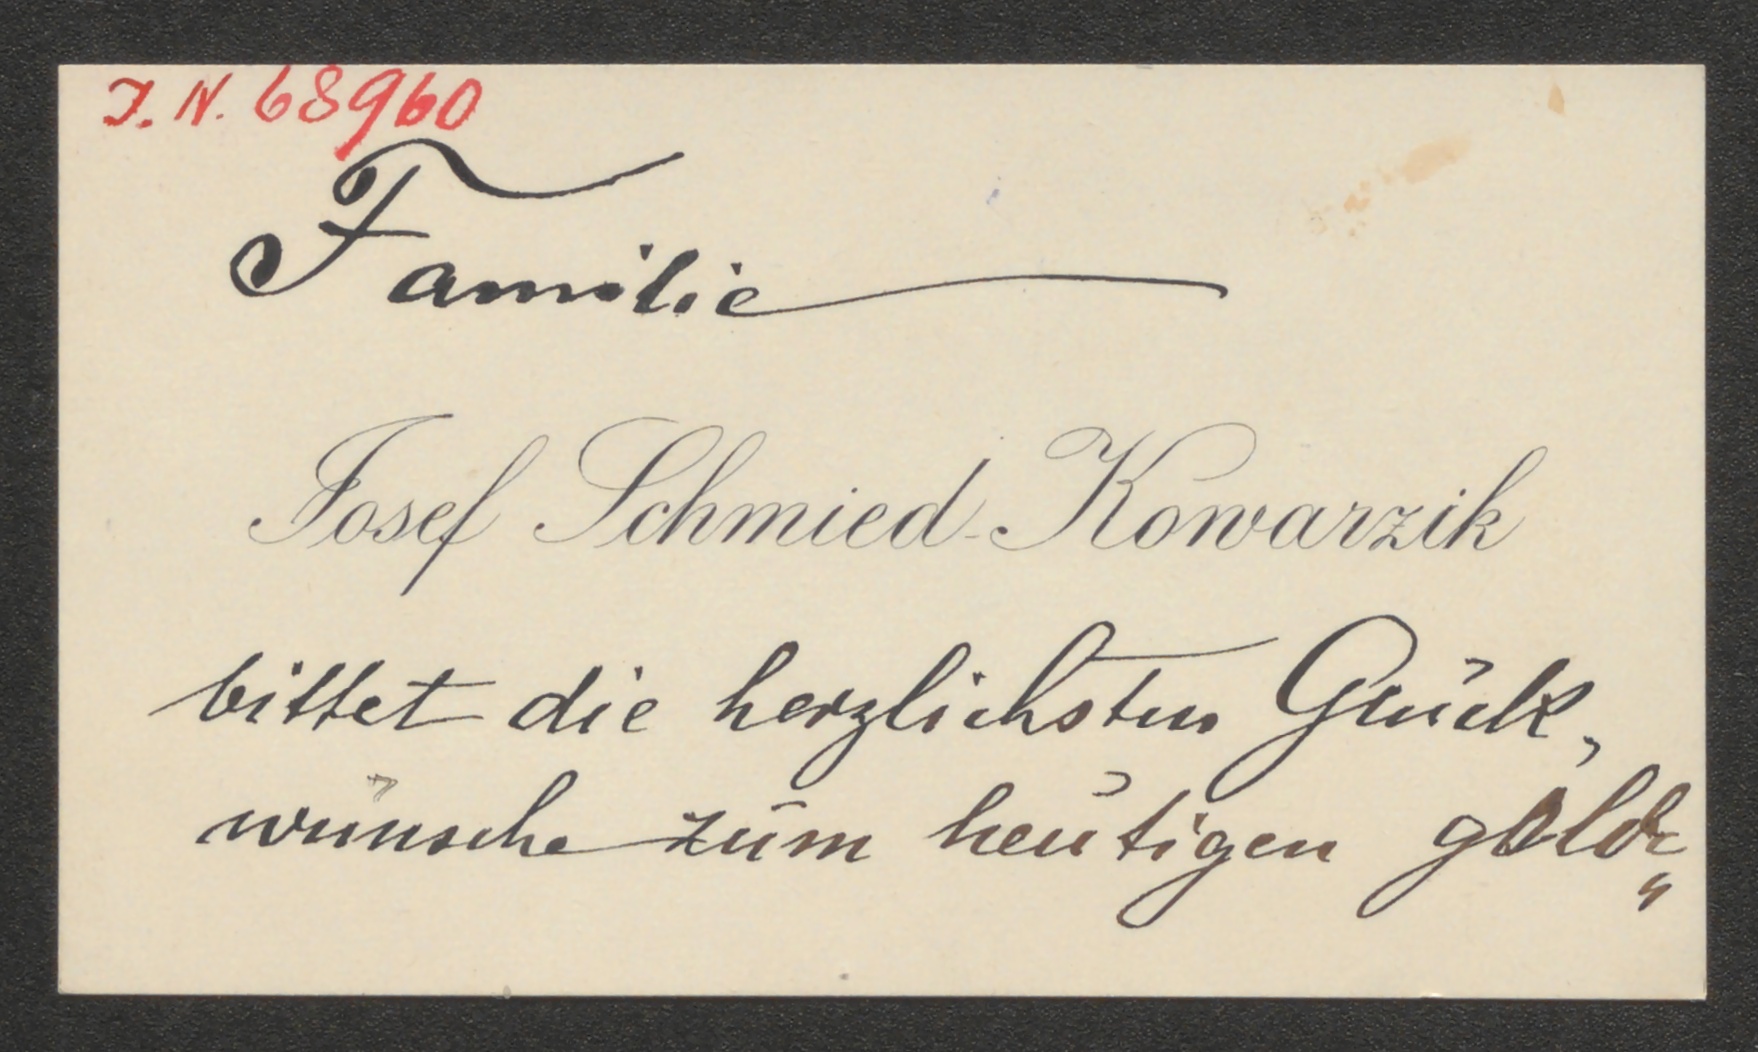 J. N. 68960
Familie
Josef Schmied-Kowarzik
bittet die herzlichsten Glück,
wünsche zum heutigen golde„